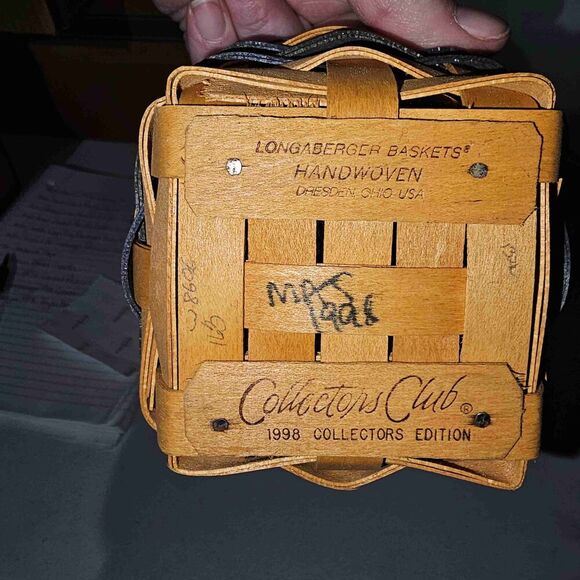 LONGABERGER BASKETS®
HANDWOVEN
DRESDEN, OHIO USA
1998
Collectors Club®
1998 COLLECTORS EDITION